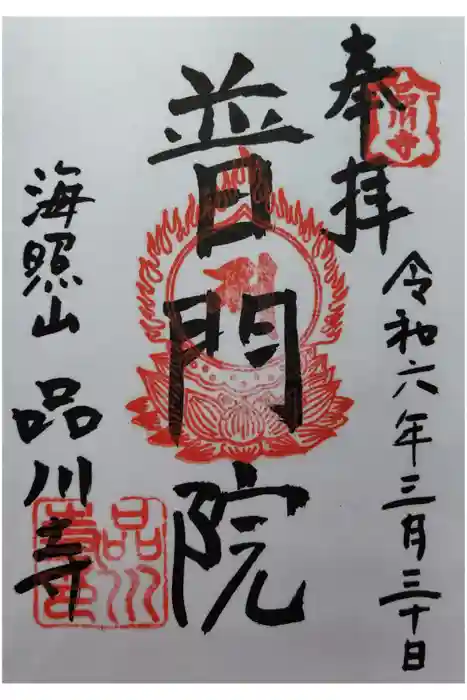 奉拝
品川寺
令和六年三月三十日
普門院
海照山 品川寺
品川